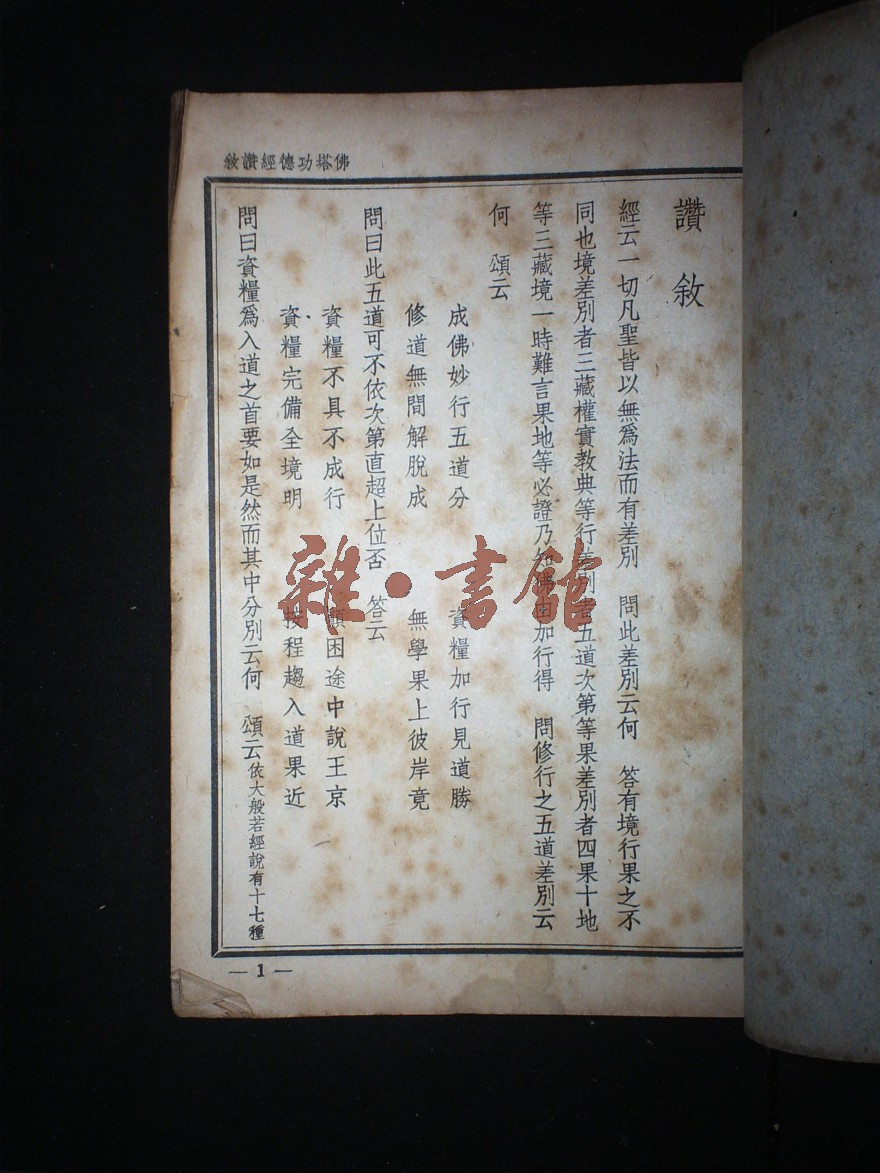 佛塔功德經讚敘
讚敘
經云一切凡聖皆以無爲法而有差別　問此差別云何　答有境行果之不
同也境差別者三藏權實教典等行差別者五道次第等果差別者四果十地
等三藏境一時難言果地等必證乃知佛由加行得　問修行之五道差別云
何　頌云
成佛妙行五道分　資糧加行見道勝
修道無間解脫成　無學果上彼岸竟
問曰此五道可不依次第直超上位否　答云
資糧不具不成行　顛困途中說王京
資糧完備全境明　按程趨入道果近
問曰資糧爲入道之首要如是然而其中分別云何　頌云依大般若經說有十七種
— 1 —
雜·書館